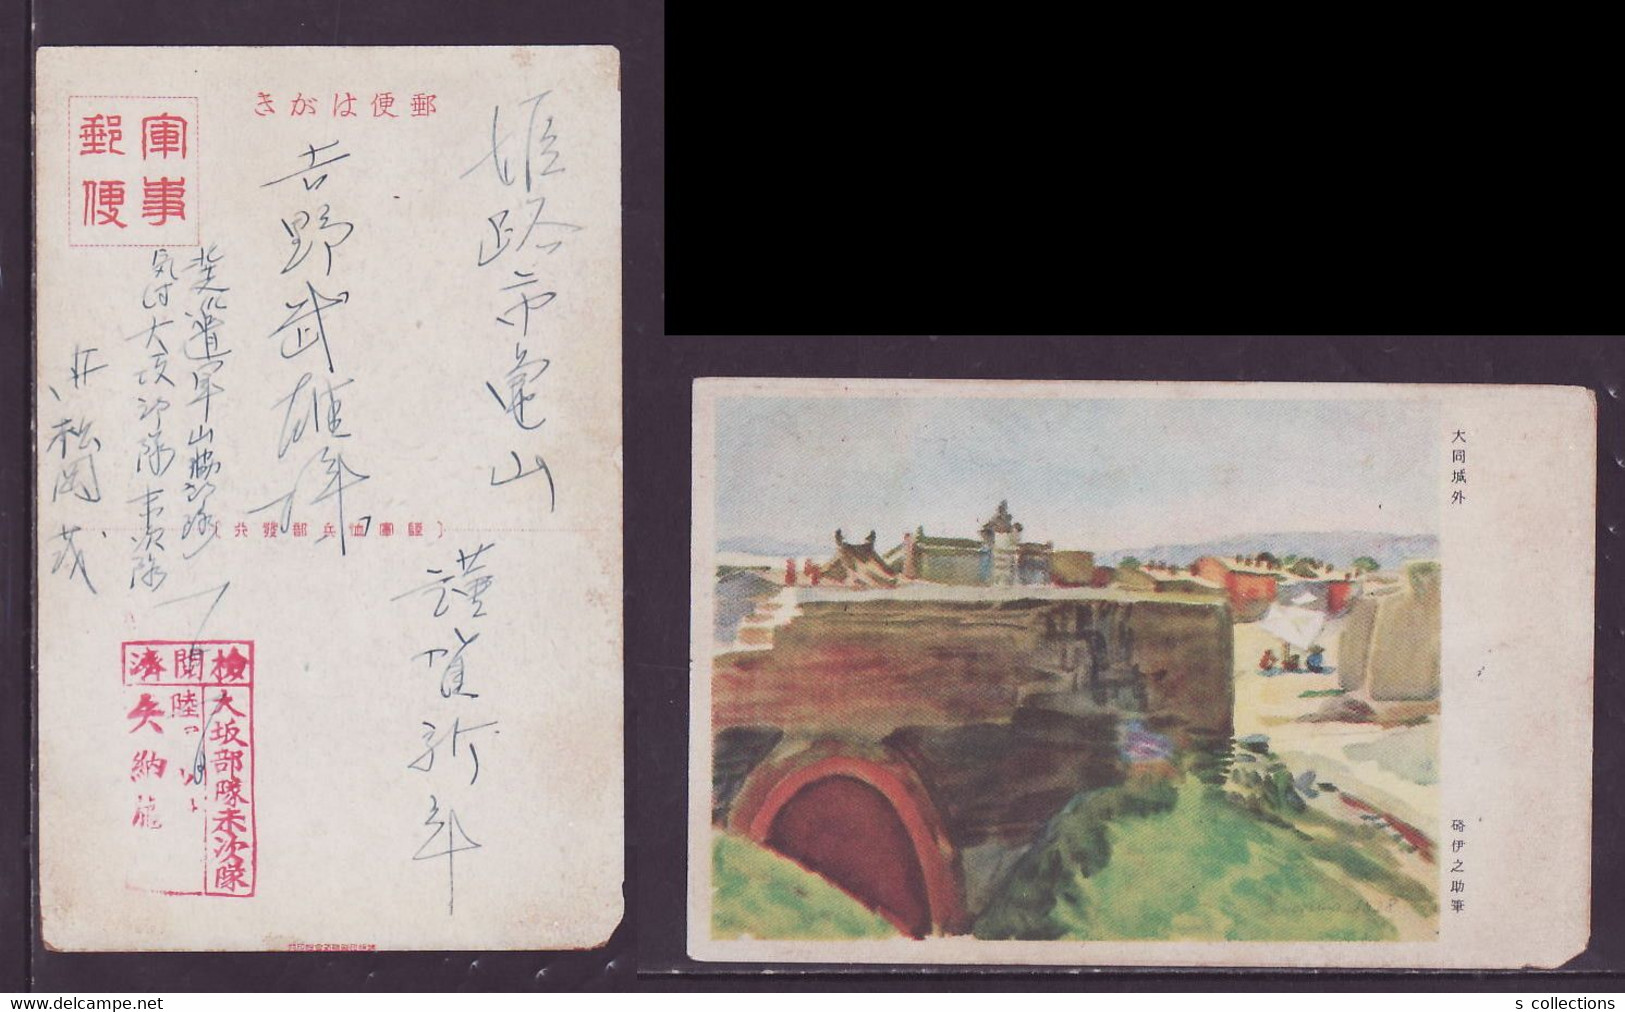 郵便はがき
軍事
郵便
姫路市亀山
吉野武雄様
謹賀新年
北支派遣軍山脇部隊
気付大坂部隊末次隊
松岡茂
陸軍恤兵部發行
檢閲濟
大坂部隊末次隊
大同城外
硲伊之助筆
www.delcampe.net
s collections